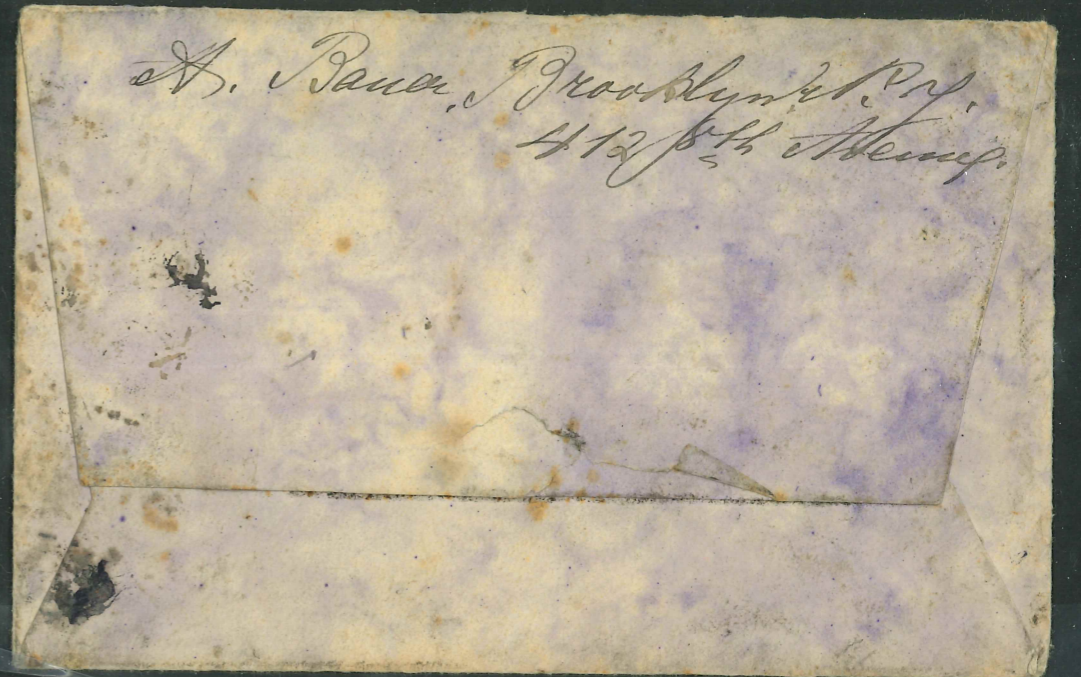 A. Bauer, Brooklyn N.Y.
412 8th Avenue.